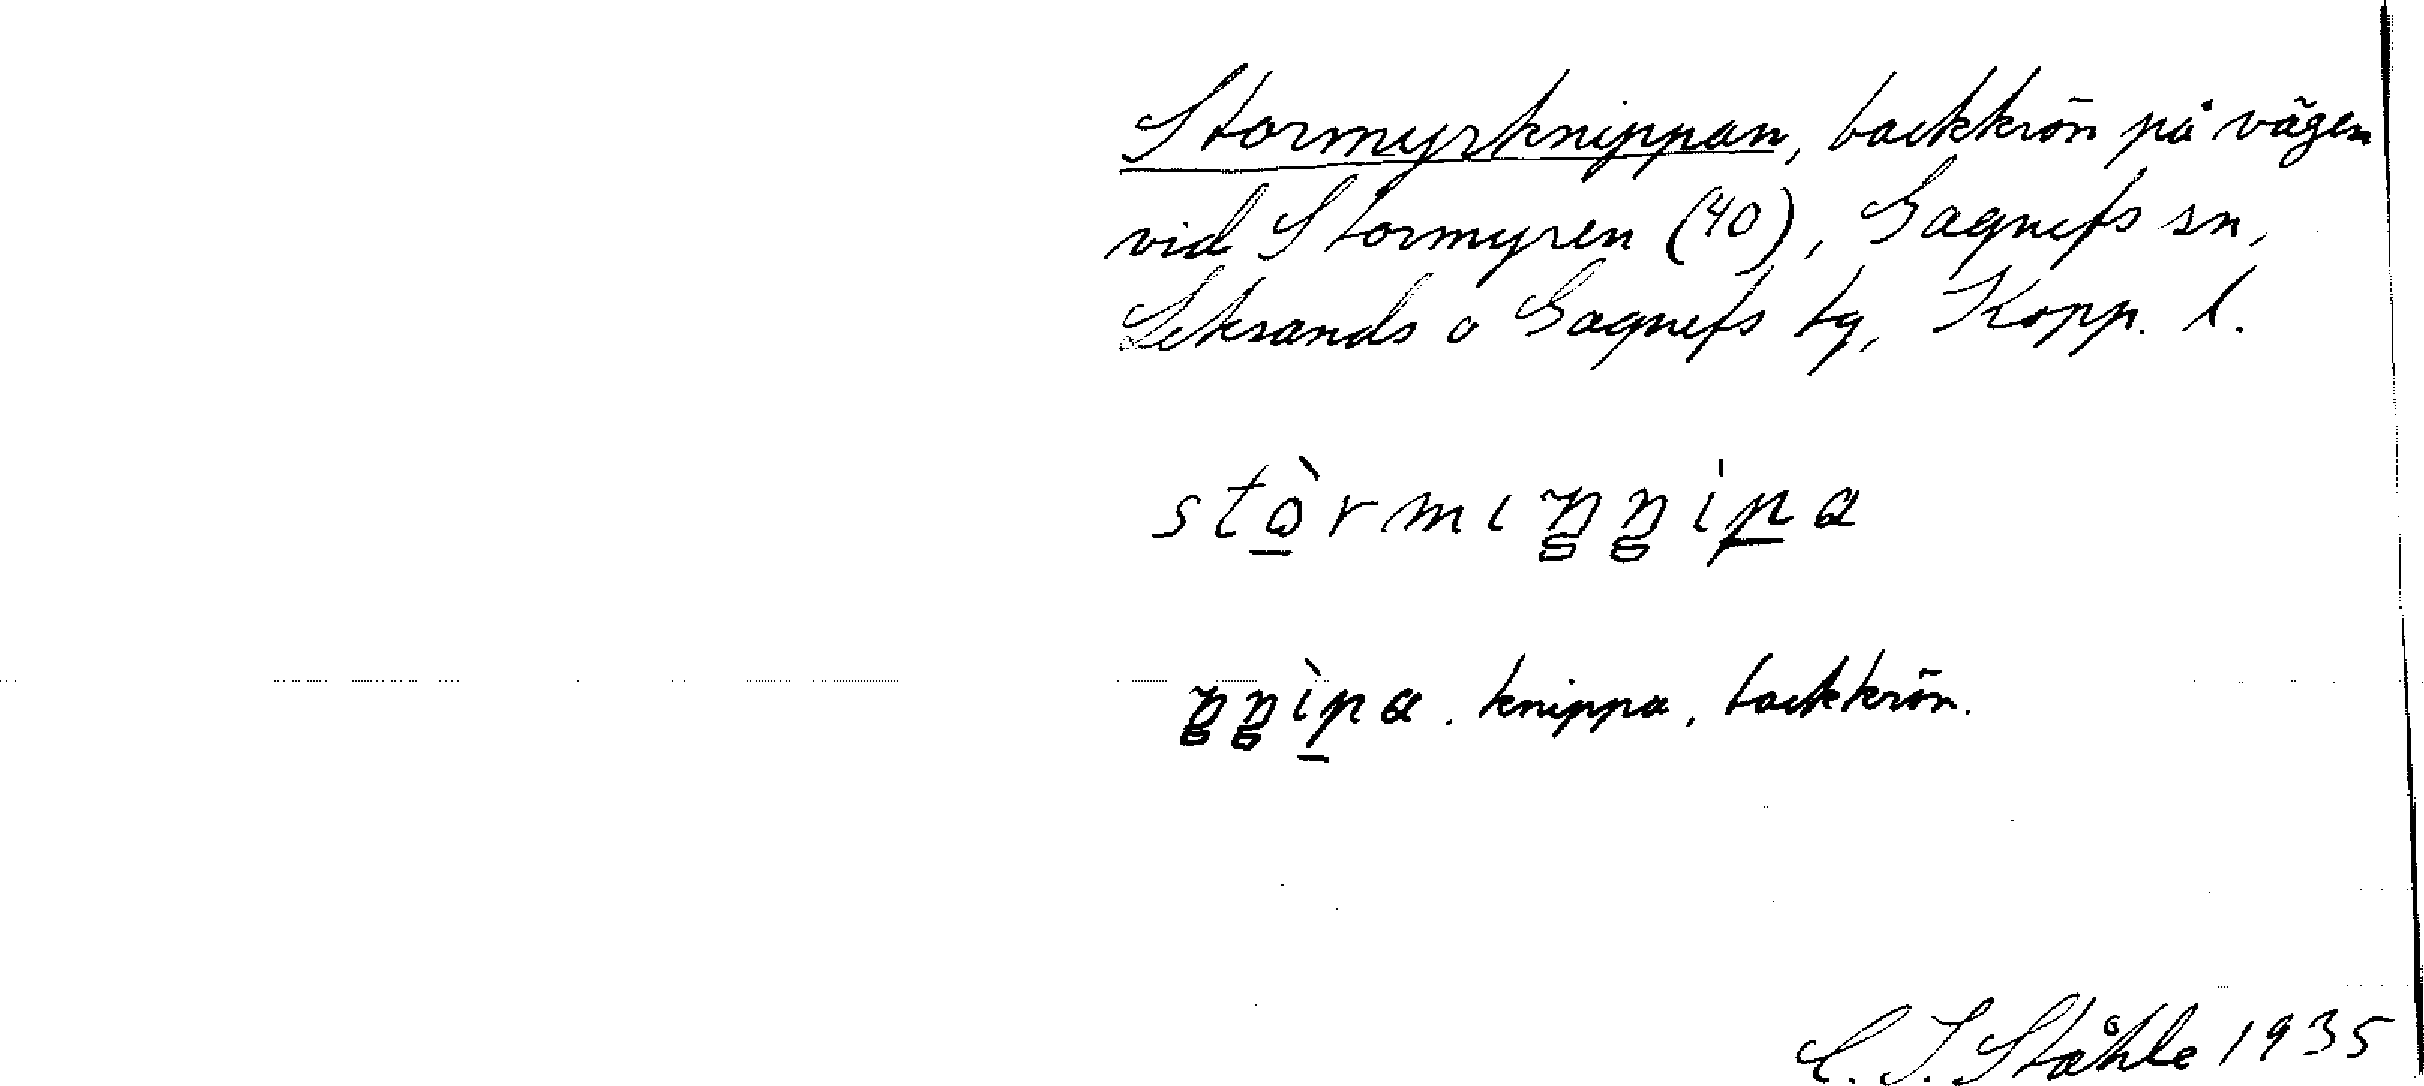 Stormyrknippan, backkrön på vägen
vid Stormyren (40), Gagnefs sn,
Leksands o Gagnefs tg, Kopp. l.
knippa, backkrön.
C. I. Ståhle 1935